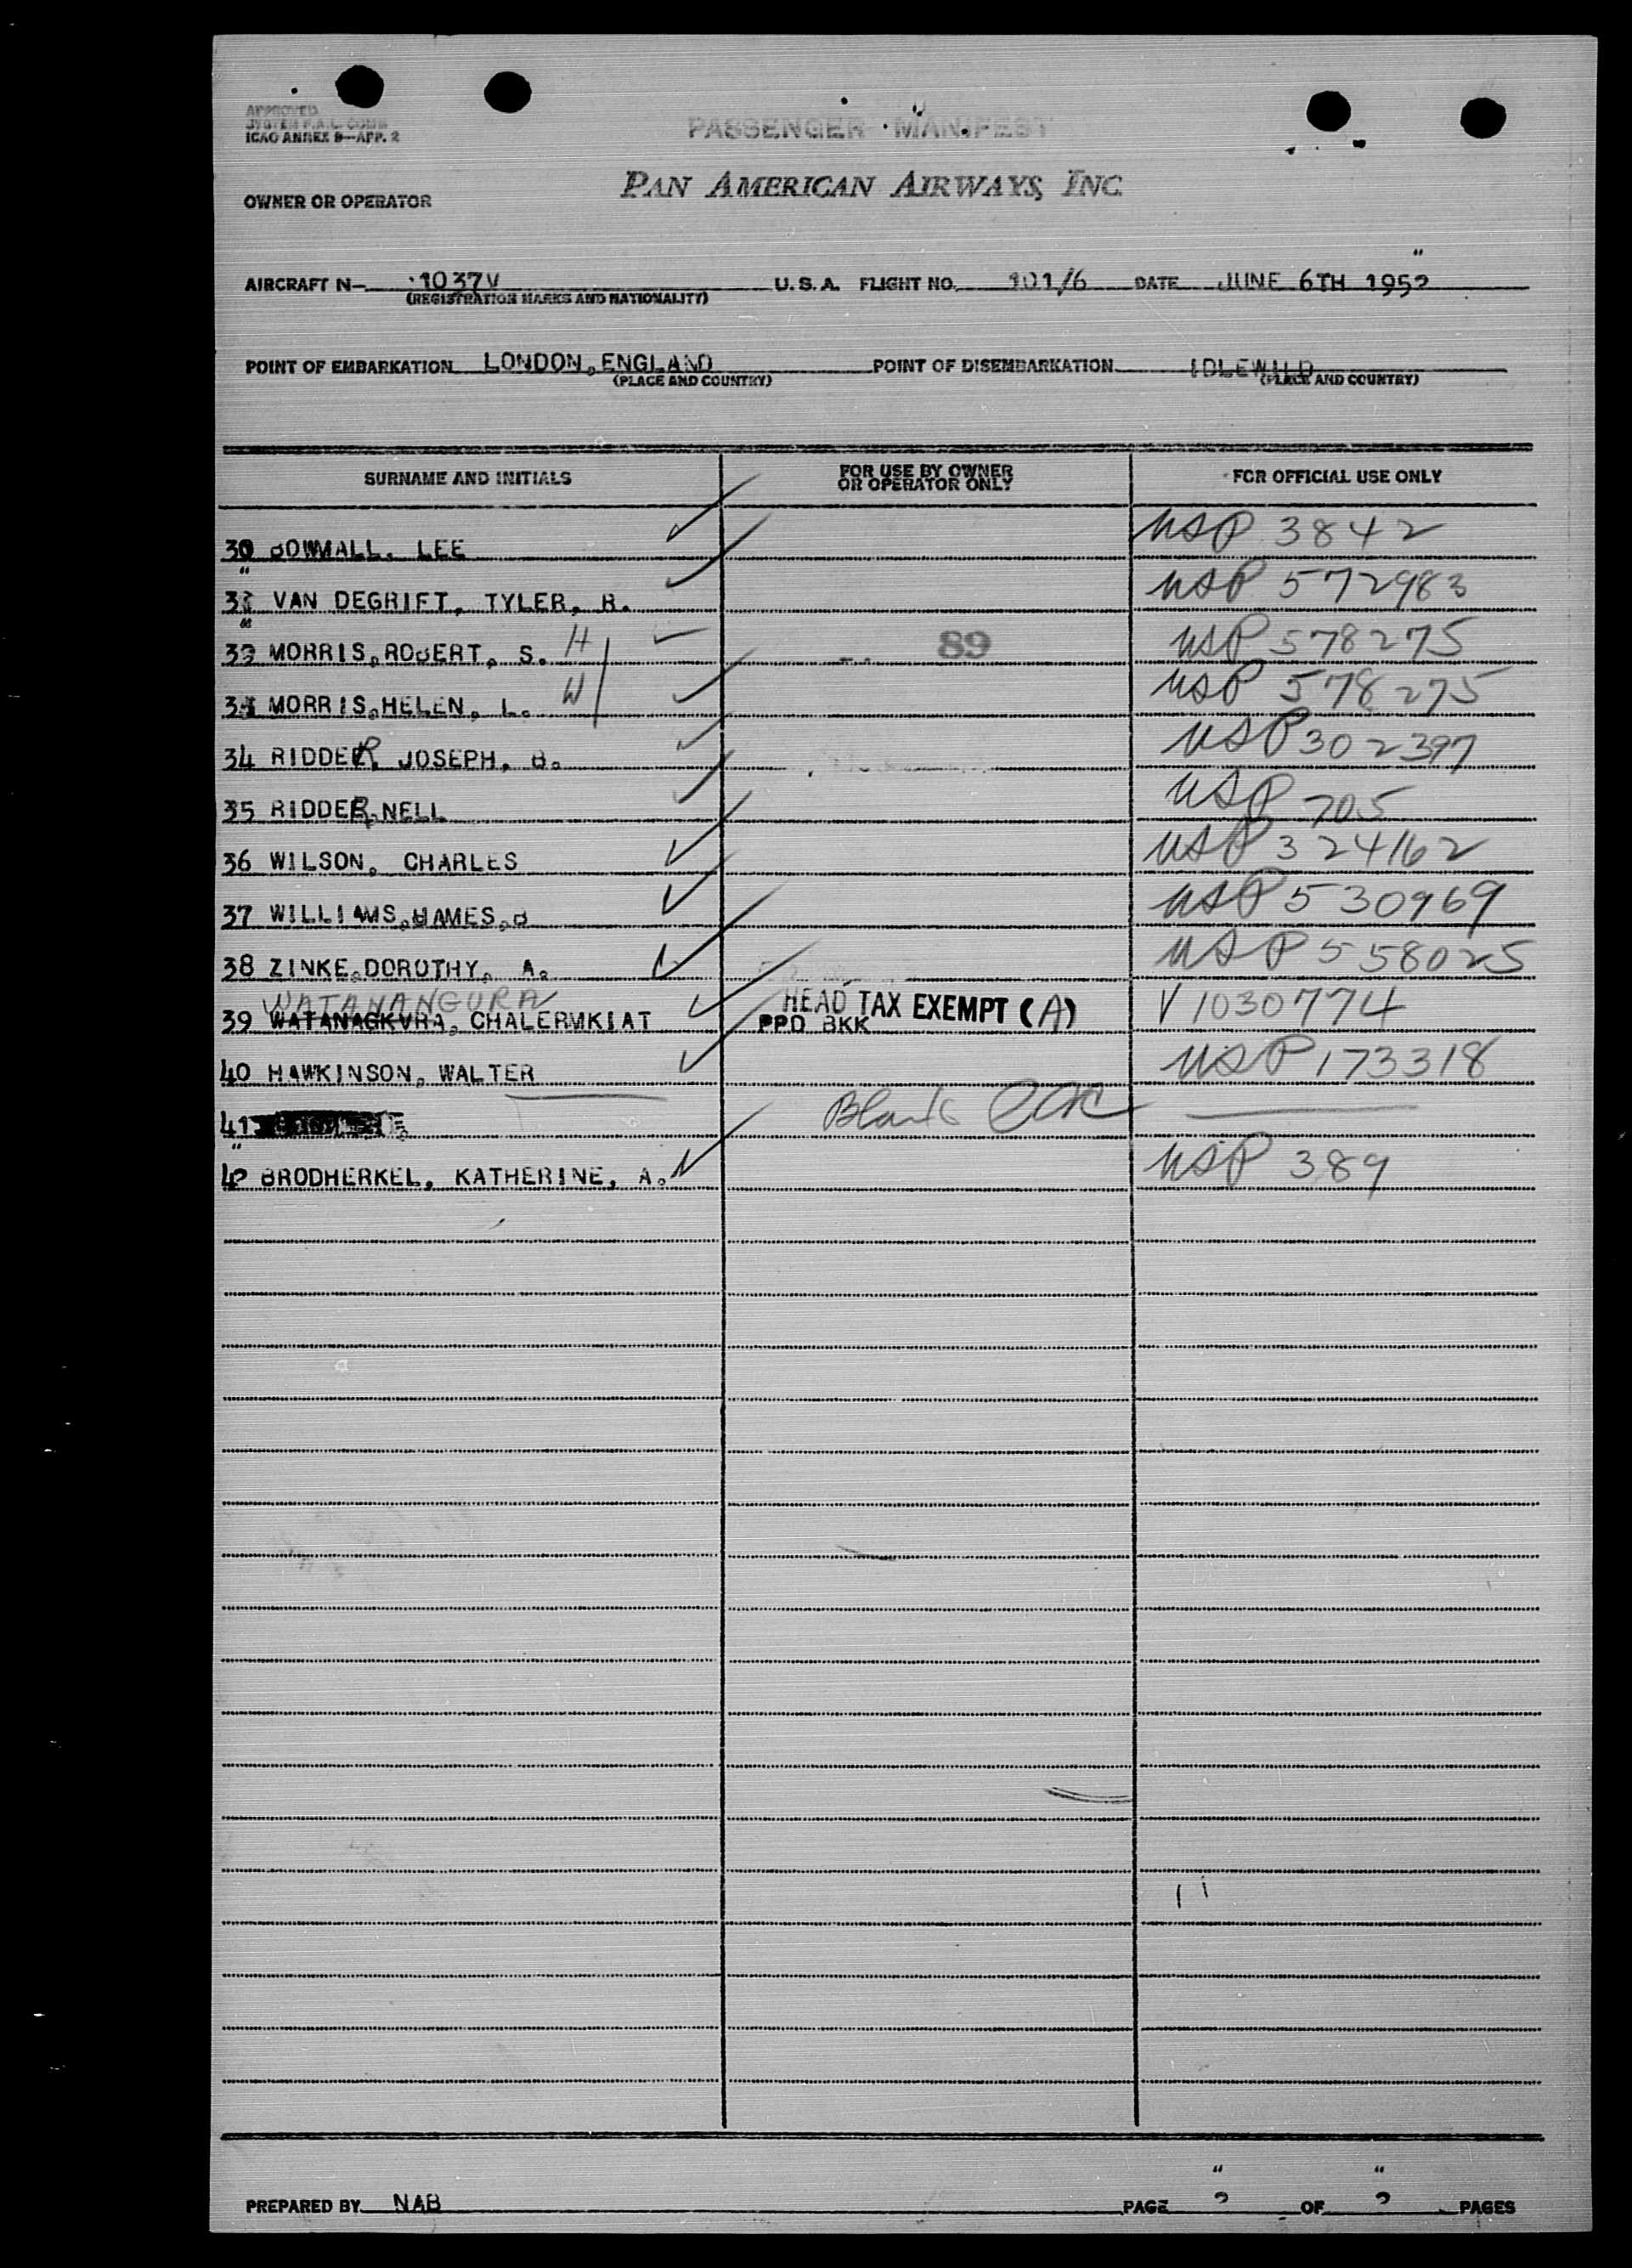 APPROVED
SYSTEM P.A.L. COMB
ICAO ANNEX 9—APP. 2
PASSENGER MANIFEST
OWNER OR OPERATOR PAN AMERICAN AIRWAYS, INC
AIRCRAFT N— 1037V U. S. A. FLIGHT NO. 101/6 DATE JUNE 6TH 1952
(REGISTRATION MARKS AND NATIONALITY)
POINT OF EMBARKATION LONDON, ENGLAND POINT OF DISEMBARKATION IDLEWILD
(PLACE AND COUNTRY) (PLACE AND COUNTRY)
SURNAME AND INITIALS FOR USE BY OWNER OR OPERATOR ONLY FOR OFFICIAL USE ONLY
30 BOWMALL, LEE USP 3842
VAN DEGRIFT, TYLER, B. USP 572983
MORRIS, ROBERT, S. H 89 USP 578275
MORRIS, HELEN, L. W USP 578275
34 RIDDER, JOSEPH, B. USP 302397
35 RIDDER, NELL USP 705
36 WILSON, CHARLES USP 324162
37 WILLIAMS, HAMES, B USP 530969
38 ZINKE, DOROTHY, A. USP 558025
WATANANGURA
39 WATANAGKVRA, CHALERMKIAT HEAD TAX EXEMPT (A) PPD BKK V 1030774
40 HAWKINSON, WALTER USP 173318
41 Blank
42 BRODHERKEL, KATHERINE, A. USP 389
PREPARED BY NAB PAGE 2 OF 2 PAGES